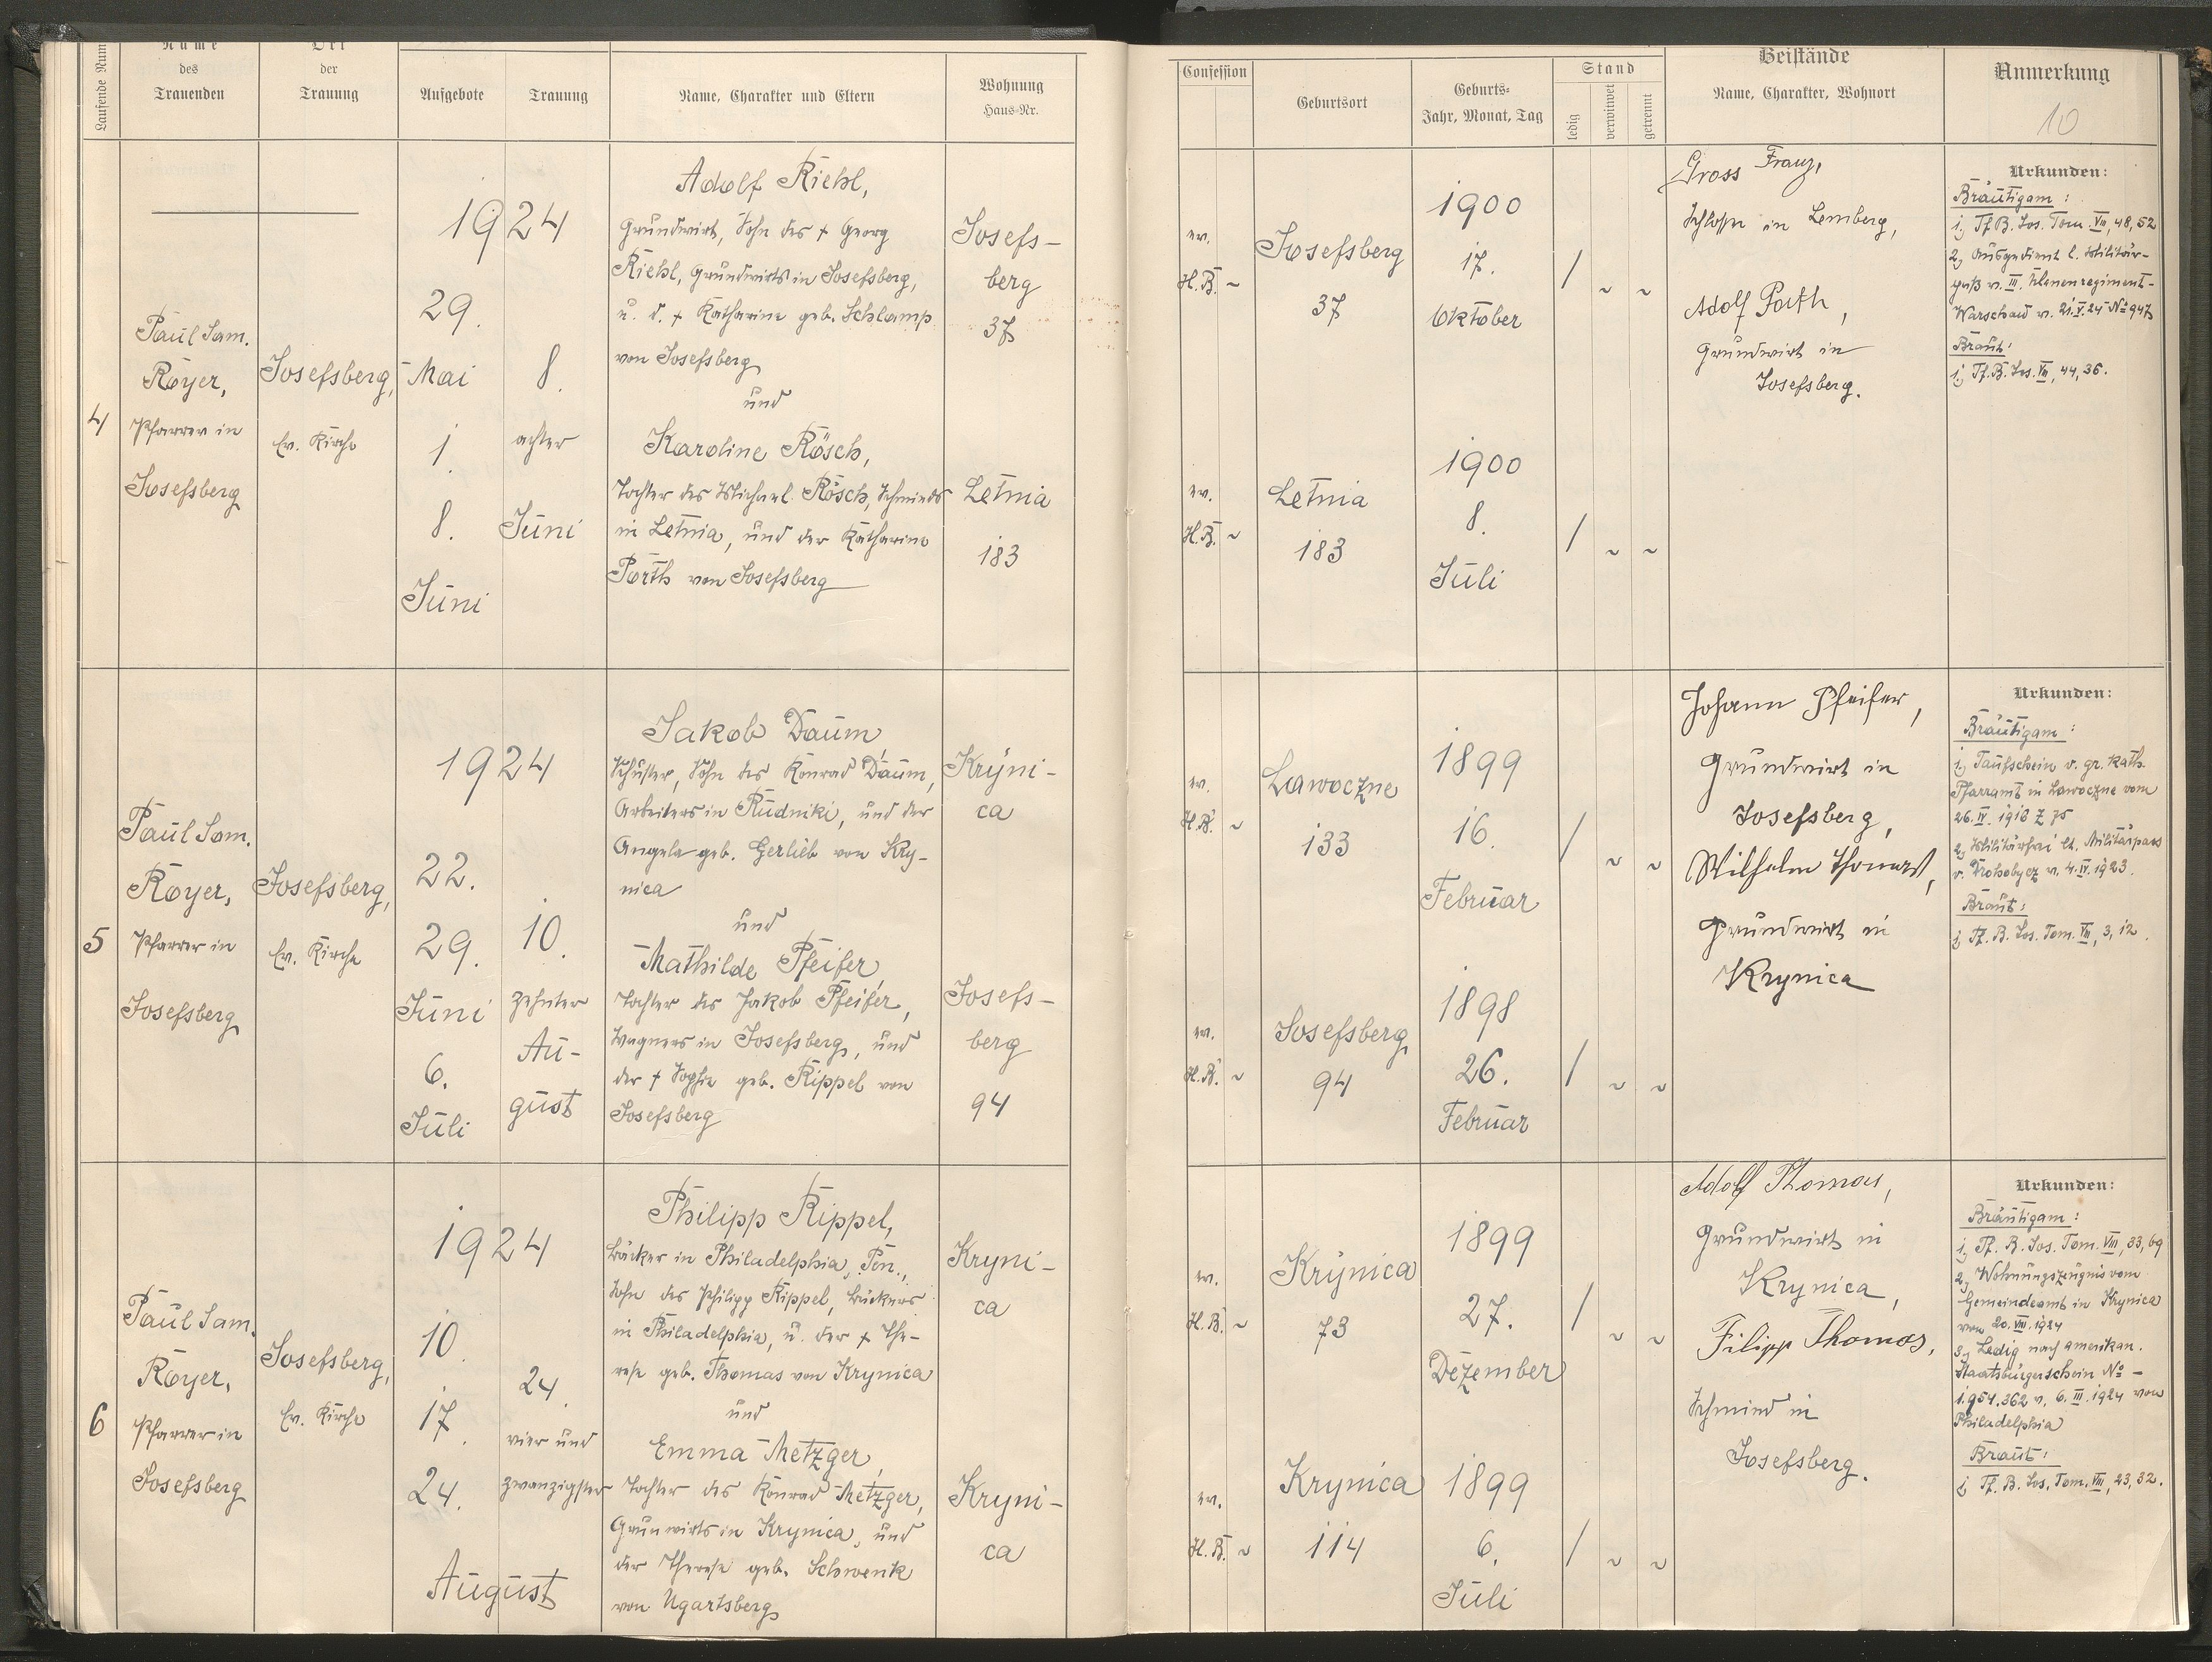 Laufende Num
Name
des
Trauenden
Ort
der
Trauung
Aufgebote
Trauung
Name, Charakter und Eltern
Wohnung
Haus-Nr.
Confession
Geburtsort
Geburts-
Jahr, Monat, Tag
Stand
ledig
verwitwet
getrennt
Beistände
Name, Charakter, Wohnort
Anmerkung
10
4
Paul Sam.
Royer,
Pfarrer in
Josefsberg
Josefsberg,
Ev. Kirche
1924
29.
Mai
1.
8.
Juni
8.
achter
Juni
Adolf Riehl,
Grundwirt, Sohn des + Georg
Riehl, Grundwirts in Josefsberg,
u. d. + Katharine geb. Schlamp
von Josefsberg
und
Karoline Rösch,
Tochter des Michael Rösch, Schmieds
in Letnia, und der Katharine
Porth von Josefsberg
Josefs-
berg
37
Letnia
183
ev.
H.B. ~
Josefsberg
37
1900
17.
Oktober
/ ~ ~
ev.
H.B. ~
Letnia
183
1900
8.
Juli
/ ~ ~
Gross Franz,
Schlosser in Lemberg,
Adolf Porth,
Grundwirt in
Josefsberg.
Urkunden:
Bräutigam:
1, Tf. B. Jos. Tom. VIII, 48, 52
2, Ausgedient l. Militär-
paß v. III. Ulanenregiment-
Warschau v. 21.V.24 No 947
Braut:
1, Tf. B. Jos. VIII, 44, 36.
5
Paul Sam.
Royer,
Pfarrer in
Josefsberg
Josefsberg,
Ev. Kirche
1924
22.
29.
Juni
6.
Juli
10.
zehnter
Au-
gust
Jakob Daum
Schuster, Sohn des Konrad Daum,
Arbeiters in Rudniki, und der
Angela geb. Gerlieb von Kry-
nica
und
Mathilde Pfeifer,
Tochter des Jakob Pfeifer,
Wagners in Josefsberg, und
der + Sophie geb. Rippel von
Josefsberg
Kryni-
ca
Josefs-
berg
94
ev.
H.B. ~
Lawoczne
133
1899
16.
Februar
/ ~ ~
ev.
H.B. ~
Josefsberg
94
1898
26.
Februar
/ ~ ~
Johann Pfeifer,
Grundwirt in
Josefsberg,
Wilhelm Thomas,
Grundwirt in
Krynica
Urkunden:
Bräutigam:
1, Taufschein v. gr. kath.
Pfarramt in Lawoczne vom
26.IV.1918 Z 75
2, Militärfrei lt. Militärpass
v. Drohobycz v. 4.IV.1923.
Braut:
1, Tf. B. Jos. Tom. VIII, 3, 12.
6
Paul Sam.
Royer,
Pfarrer in
Josefsberg
Josefsberg,
Ev. Kirche
1924
10.
17.
24.
August
24.
vier und
zwanzigster
Philipp Rippel,
Bäcker in Philadelphia, Pen.,
Sohn des Philipp Rippel, Bäckers
in Philadelphia, u. der + The-
rese geb. Thomas von Krynica
und
Emma Metzger,
Tochter des Konrad Metzger,
Grunwirts in Krynica, und
der Therese geb. Schwenk
von Ugartsberg
Kryni-
ca
Kryni-
ca
ev.
H.B. ~
Krynica
73
1899
27.
Dezember
/ ~ ~
ev.
H.B. ~
Krynica
114
1899
6.
Juli
/ ~ ~
Adolf Thomas,
Grundwirt in
Krynica,
Filipp Thomas,
Schmied in
Josefsberg.
Urkunden:
Bräutigam:
1, Tf. B. Jos. Tom. VIII, 33, 69
2, Wohnungszeugnis vom
Gemeindeamt in Krynica
vom 20.VIII.1924
3, Ledig nach amerikan.
Staatsbürgerschein No -
1.954.362 v. 6.III.1924 von
Philadelphia
Braut:
1, Tf. B. Jos. Tom. VIII, 23, 32.